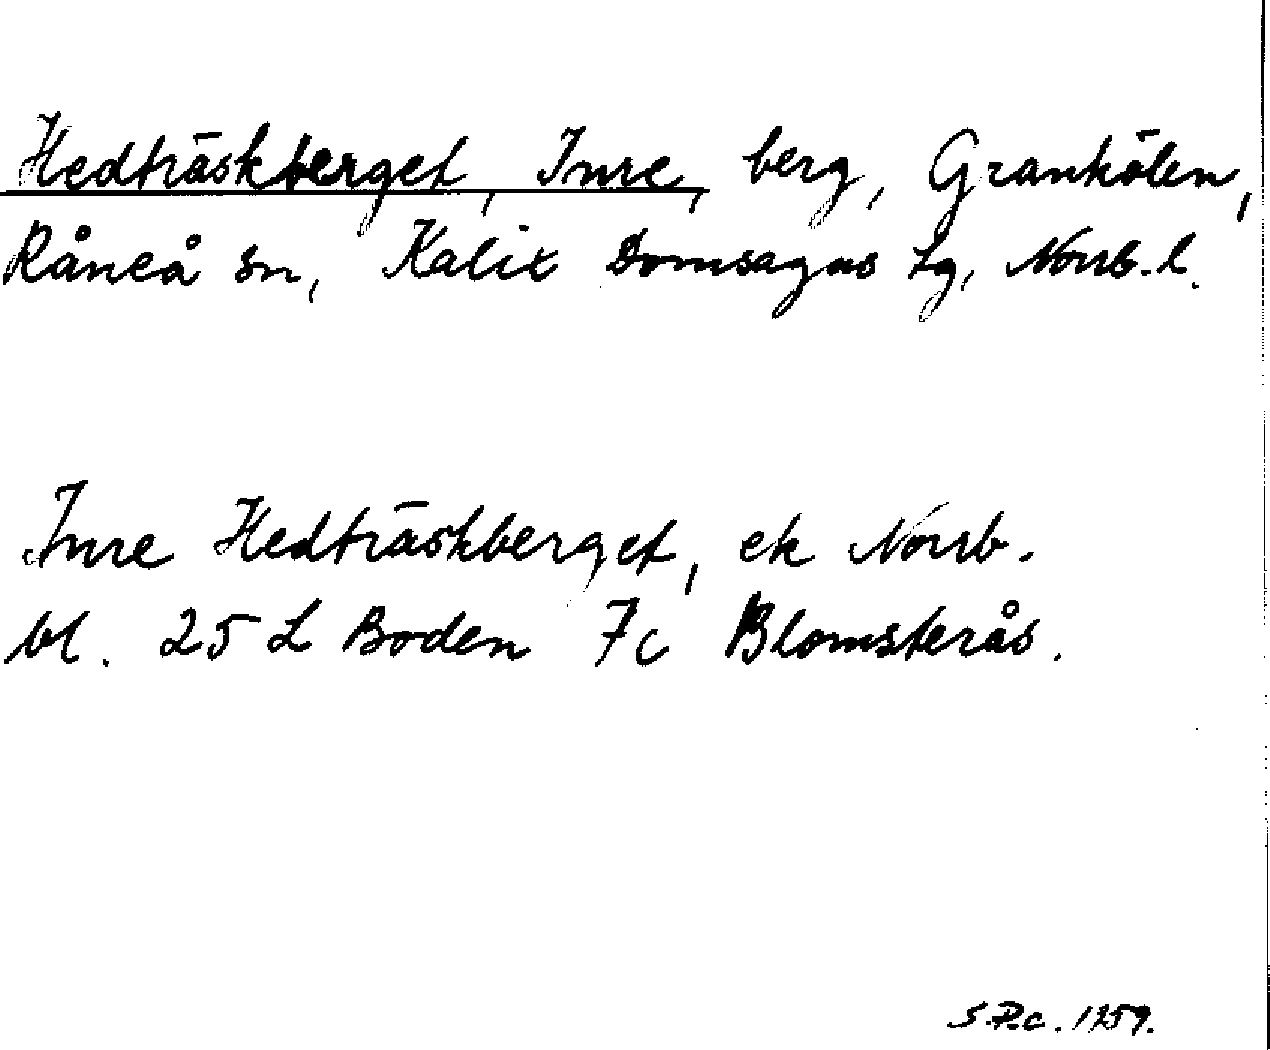 Hedträskberget, Inre, berg, Grankölen,
Råneå sn, Kalix Domsagas Lg, Norrb. l.
Inre Hedträskberget, ek Norrb.
bl. 25 L Boden 7c Blomsterås.
S.P.c. 1259.